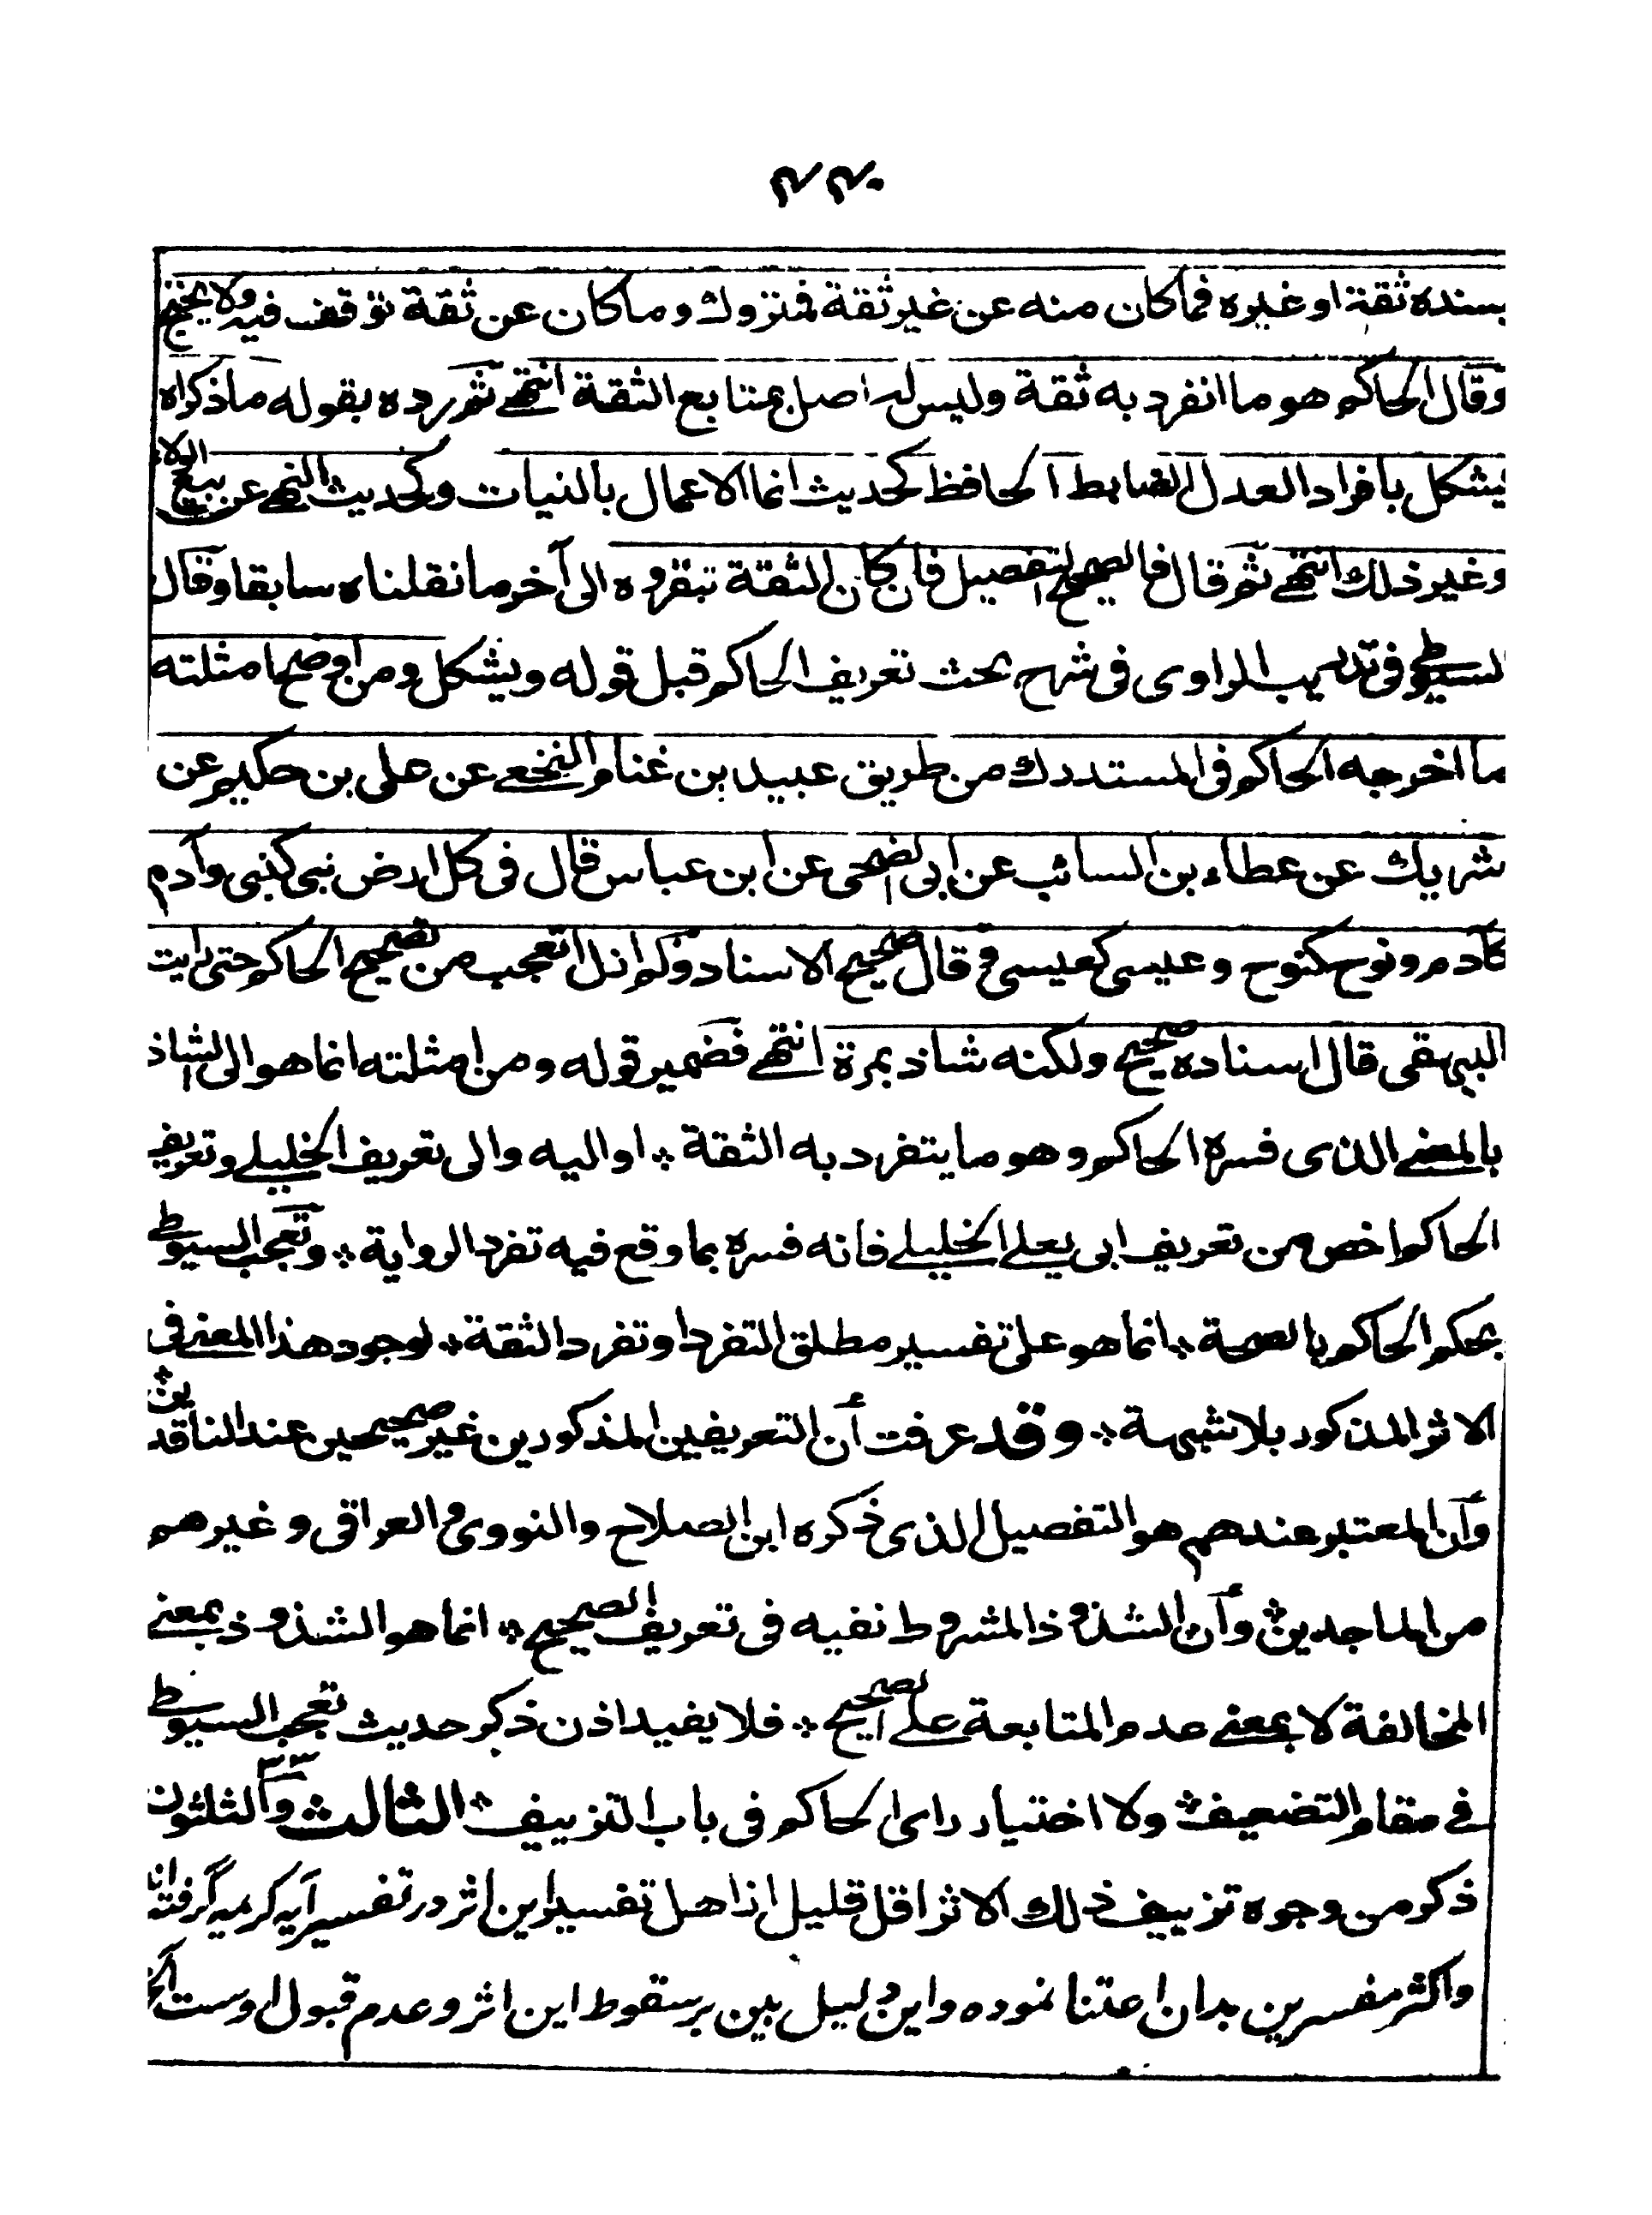 بسنده ثقة او غيره فما كان منه عن غير ثقة فمتروك وما كان عن ثقة توقف فيه ولا يحتج
وقال الحاكم هو ما انفرد به ثقة وليس له اصل بمتابع الثقة انتهى ثم رده بقوله ما ذكراه
يشكل بافراد العدل الضابط الحافظ كحديث انما الاعمال بالنيات وكحديث النهى عن بيع الولاء
وغير ذلك انتهى ثم قال فالصحيح التفصيل فان كان الثقة بتفرده الى آخر ما نقلناه سابقا وقال
السيوطى فى تدريب الراوى فى شرح بحث تعريف الحاكم قبل قوله ويشكل ومن اوضح امثلته
ما اخرجه الحاكم فى المستدرك من طريق عبيد بن غنام النخعى عن على بن حكيم عن
شريك عن عطاء بن السائب عن ابى الضحى عن ابن عباس قال فى كل ارض نبى كنبى وآدم
كآدم ونوح كنوح وعيسى كعيسى وقال صحيح الاسناد ولم ازل اتعجب من تصحيح الحاكم حتى رايت
البيهقى قال اسناده صحيح ولكنه شاذ بمرة انتهى فضمير قوله ومن امثلته انما هو الى الشاذ
بالمعنى الذى فسره الحاكم وهو ما يتفرد به الثقة ۞ او اليه والى تعريف الخليلى وتعريف
الحاكم اخص من تعريف ابى يعلى الخليلى فانه فسره بما وقع فيه تفرد الرواية ۞ وتعجب السيوطى
بحكم الحاكم بالصحة ۞ انما هو على تفسير مطلق التفرد او تفرد الثقة ۞ لوجود هذا المعنى فى
الاثر المذكور بلا شبهة ۞ وقد عرفت أن التعريفين المذكورين غير صحيحين عند الناقدين ۞
وأن المعتبر عندهم هو التفصيل الذى ذكره ابن الصلاح والنووى والعراقى وغيرهم
من الماجدين ۞ وأن الشذوذ المشروط نفيه فى تعريف الصحيح ۞ انما هو الشذوذ بمعنى
المخالفة لا بمعنى عدم المتابعة على الصحيح ۞ فلا يفيد اذن ذكر حديث تعجب السيوطى
فى مقام التضعيف ۞ ولا اختيار راى الحاكم فى باب التزييف ۞ الثالث والثلثون
ذكر من وجوه تزييف ذلك الاثر اقل قليل از اهل تفسير اين اثر در تفسير آيه كريمه گرفته اند
واكثر مفسرين بدان اعتنا نموده واين دليل بين بر سقوط اين اثر وعدم قبول اوست الخ